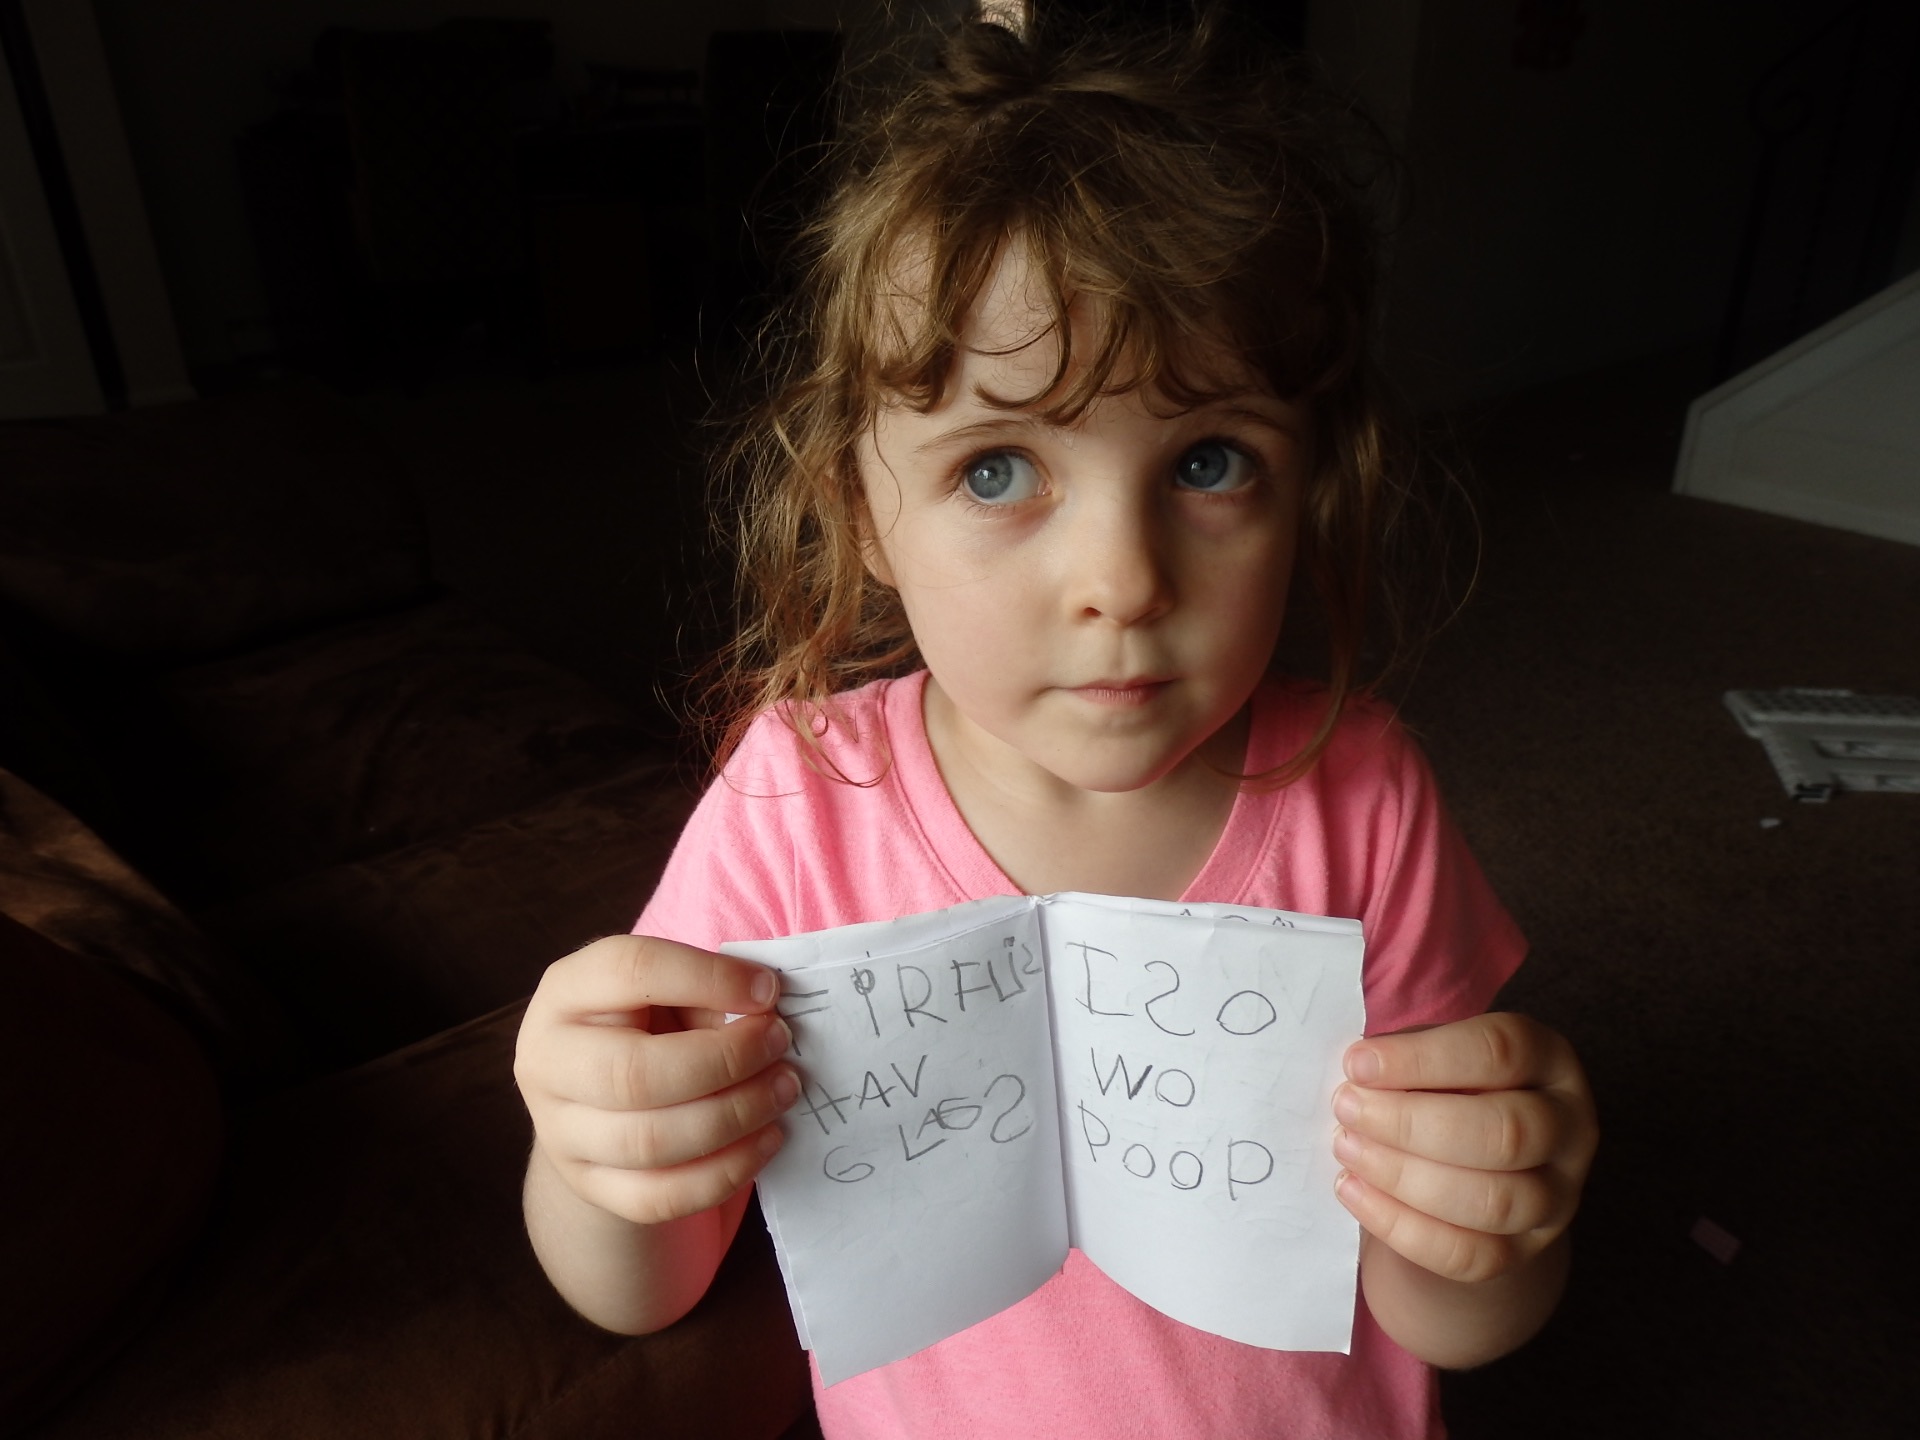 FIRFLIS
HAV
GLAGS
ISO
WO
POOP